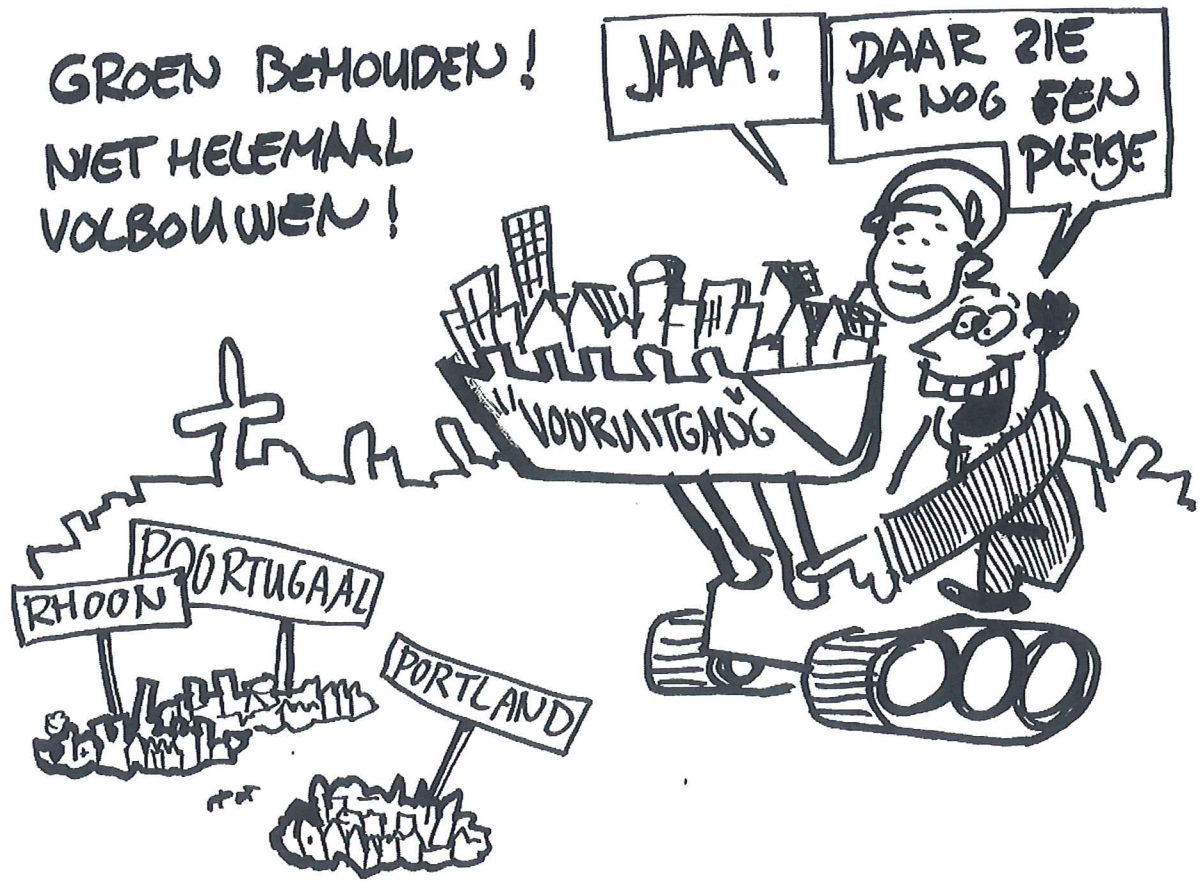 GROEN BEHOUDEN!
NIET HELEMAAL
VOLBOUWEN!
JAAA!
DAAR ZIE
IK NOG EEN
PLEKJE
"VOORUITGANG"
POORTUGAAL
RHOON
PORTLAND